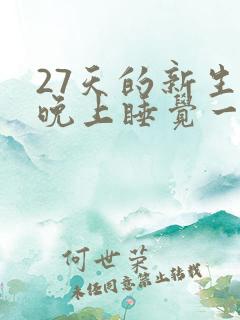 27天的新生
晚上睡觉一
何世荣
未经同意禁止转载